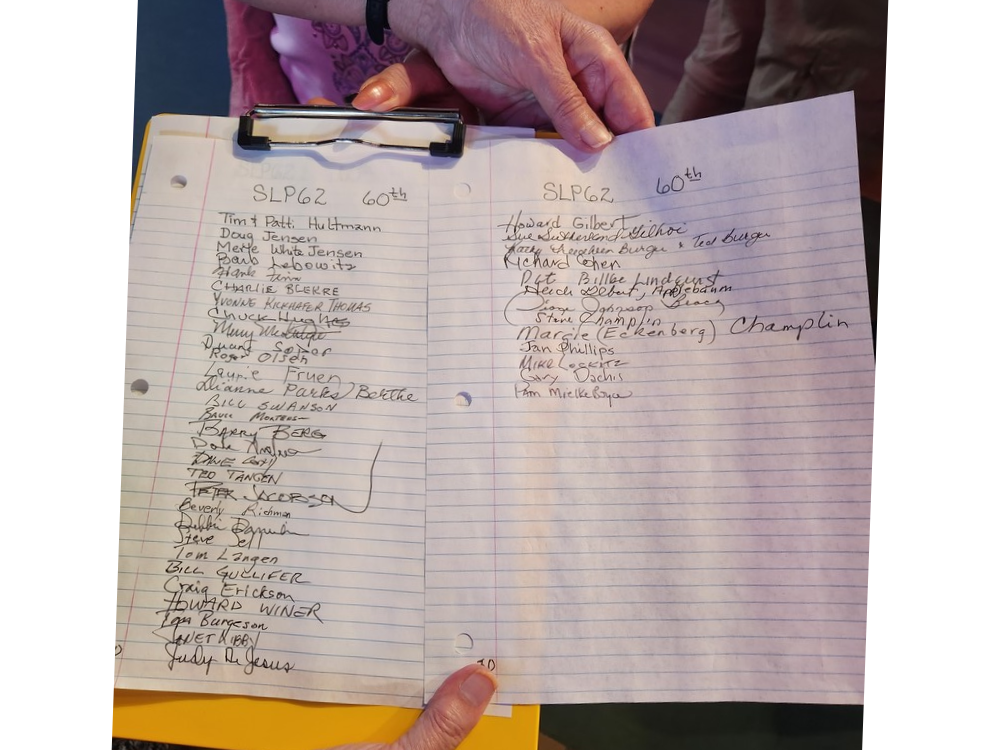 SLP62 60th
Tim & Patti Hultmann
Doug Jensen
Merle White Jensen
Barb Lebowitz
Hank
CHARLIE BLEKRE
YVONNE KICKHAFER THOMAS
Chuck Hughes
Mary
Duane
Roger Olsen
Laurie Fruen
Dianne Parks) Berthe
BILL SWANSON
Bruce
BARRY BERG
Dale
DAVE
TED TANGEN
PETER JACOBSEN
Beverly Richman
Debbie
Steve
Tom Langen
BILL GULLIFER
Craig Erickson
HOWARD WINER
Tom Burgeson
JANET KIBBY
Judy DeJesus
SLP62 60th
Howard Gilbert
Sue Sutherland Gilhoi
Kathy Burger & Ted Burger
Richard Chen
Pat Billbe Lindquist
Heidi Applebaum
Johnson
Steve Champlin
Margie (Eckenberg) Champlin
Jan Phillips
MIKE
Gary Dachis
Pam Mielke
30